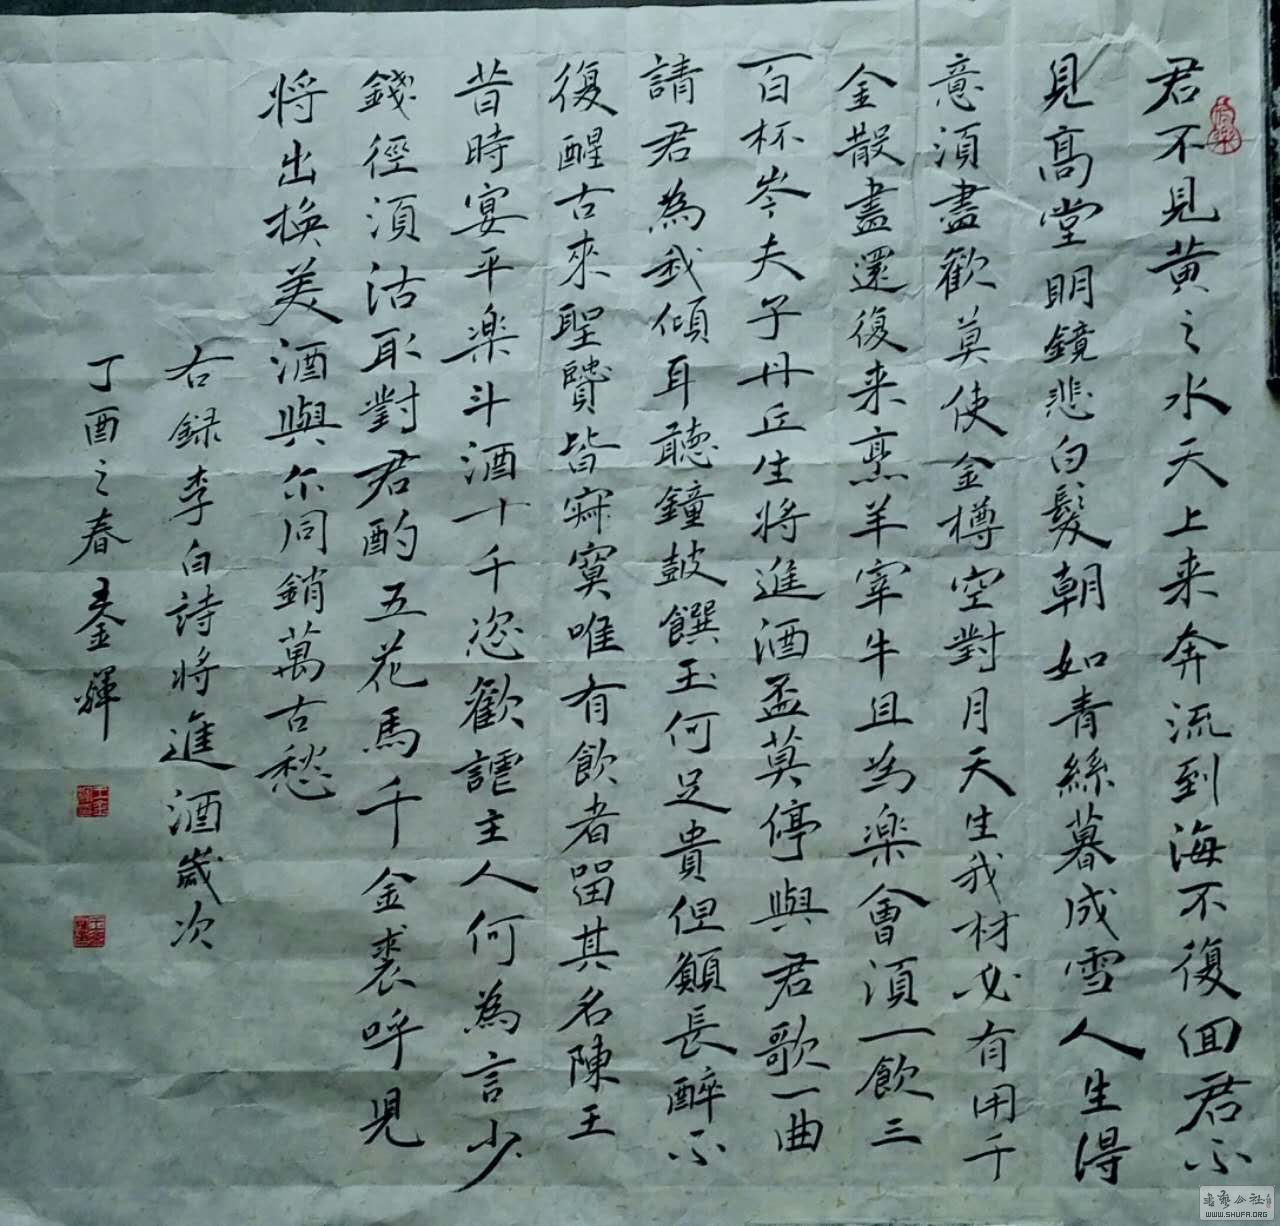 君不見黄之水天上来奔流到海不復回君不
見高堂明鏡悲白髮朝如青絲暮成雪人生得
意須盡歡莫使金樽空對月天生我材必有用千
金散盡還復来烹羊宰牛且為楽會須一飲三
百杯岑夫子丹丘生將進酒盃莫停與君歌一曲
請君為我傾耳聽鐘鼓饌玉何足貴但願長醉不
復醒古來聖賢皆寂寞唯有飲者留其名陳王
昔時宴平楽斗酒十千恣歡謔主人何為言少
錢徑須沽取對君酌五花馬千金裘呼児
将出換美酒與尔同銷萬古愁
右録李白詩將進酒歲次
丁酉之春 金輝
书艺公社
WWW.SHUFA.ORG